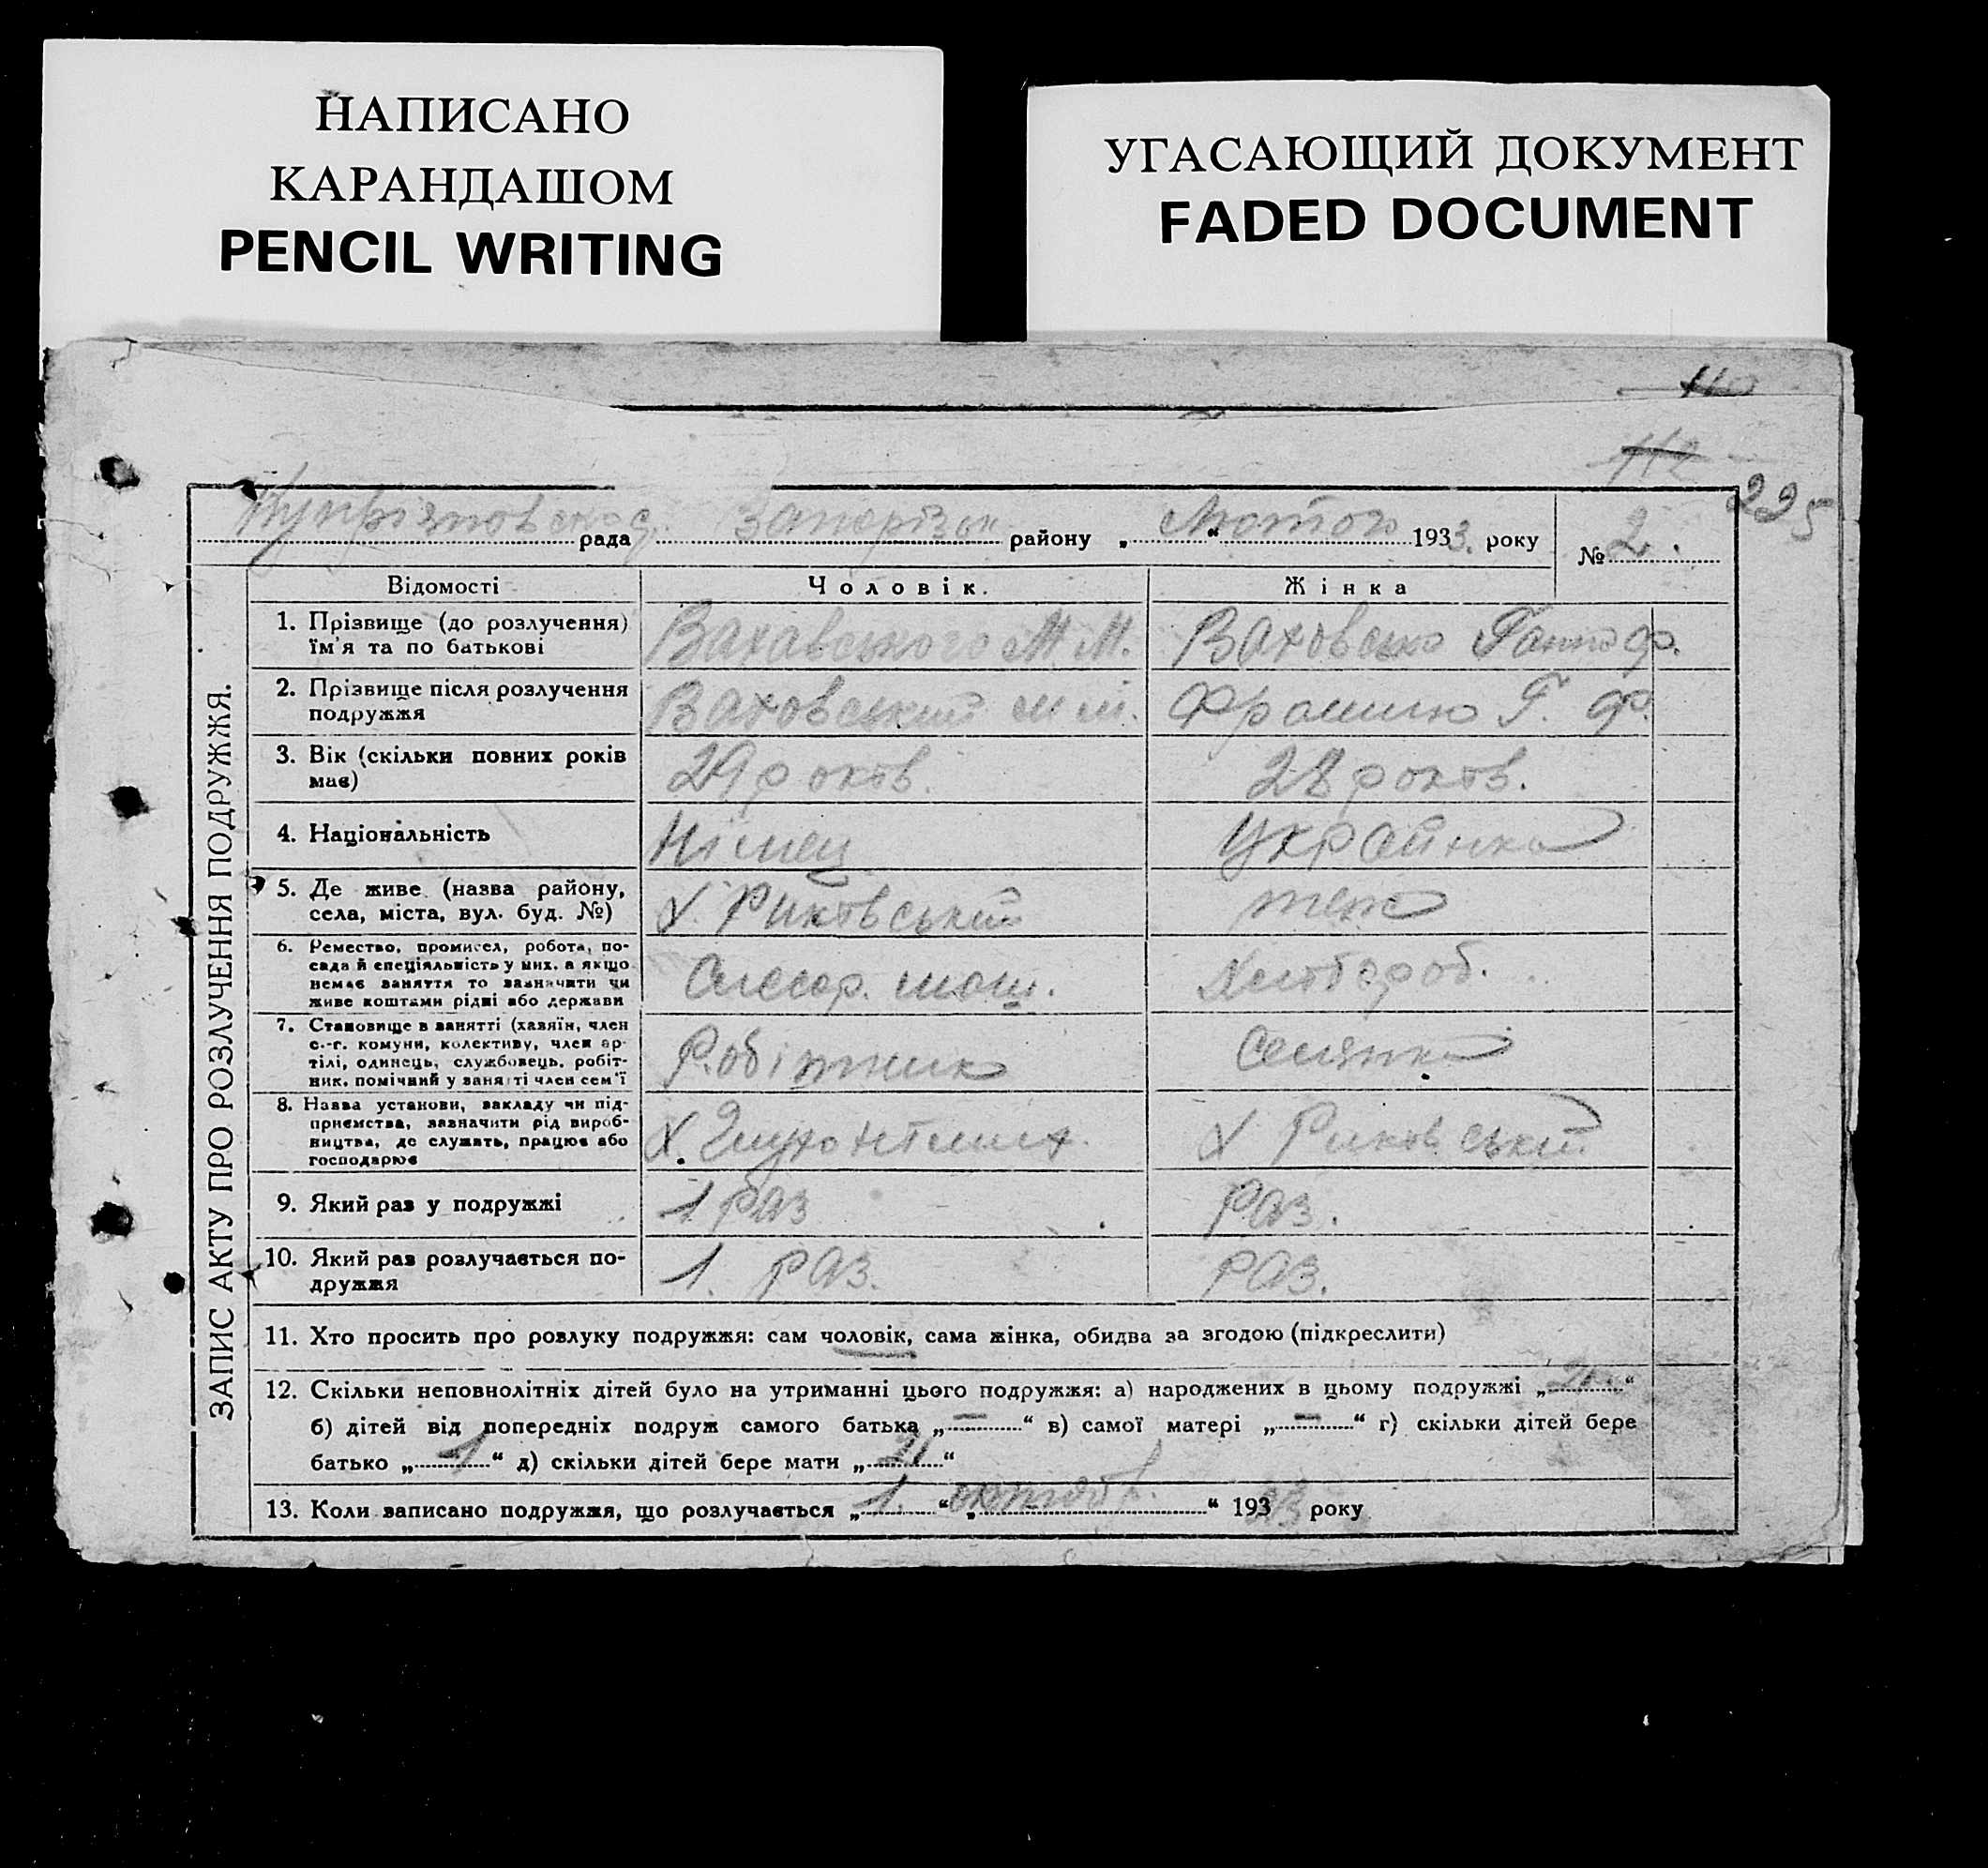 НАПИСАНО
КАРАНДАШОМ
PENCIL WRITING
УГАСАЮЩИЙ ДОКУМЕНТ
FADED DOCUMENT
112
225
рада Запорізьк району „ “ Лютого 1933. року № 2.
ЗАПИС АКТУ ПРО РОЗЛУЧЕННЯ ПОДРУЖЖЯ.
Відомості Чоловік. Жінка
1. Прізвище (до розлучення) їм'я та по батькові
Вахавського М М.Ваховсько Ганна Ф.
2. Прізвище після розлучення подружжя
Ваховський М М. Г. Ф.
3. Вік (скільки повних років має)
29 років. 28 років.
4. Національність
Німец Українка
5. Де живе (назва району, села, міста, вул. буд. №)
х. Риковський теж
6. Ремество, промисел, робота, посада й спеціяльність у них, а якщо немає заняття то зазначити чи живе коштами рідні або держави
Слесар. маш. Хлібороб.
7. Становище в занятті (хазяїн, член с.-г. комуни, колективу, член артілі, одинець, службовець, робітник, помічний у занятті член сем'ї
Робітник Селянка
8. Назва установи, закладу чи підприємства, зазначити рід виробництва, де служать, працює або господарює
х. х Риковській
9. Який раз у подружжі
1 раз раз.
10. Який раз розлучається подружжя
1. раз. раз.
11. Хто просить про розлуку подружжя: сам чоловік, сама жінка, обидва за згодою (підкреслити)
12. Скільки неповнолітніх дітей було на утриманні цього подружжя: а) народжених в цьому подружжі „ “
б) дітей від попередніх подруж самого батька „ — “ в) самої матері „ — “ г) скільки дітей бере
батько „ 1 “ д) скільки дітей бере мати „ “
13. Коли записано подружжя, що розлучається „ 1. “ „ “ 193 року